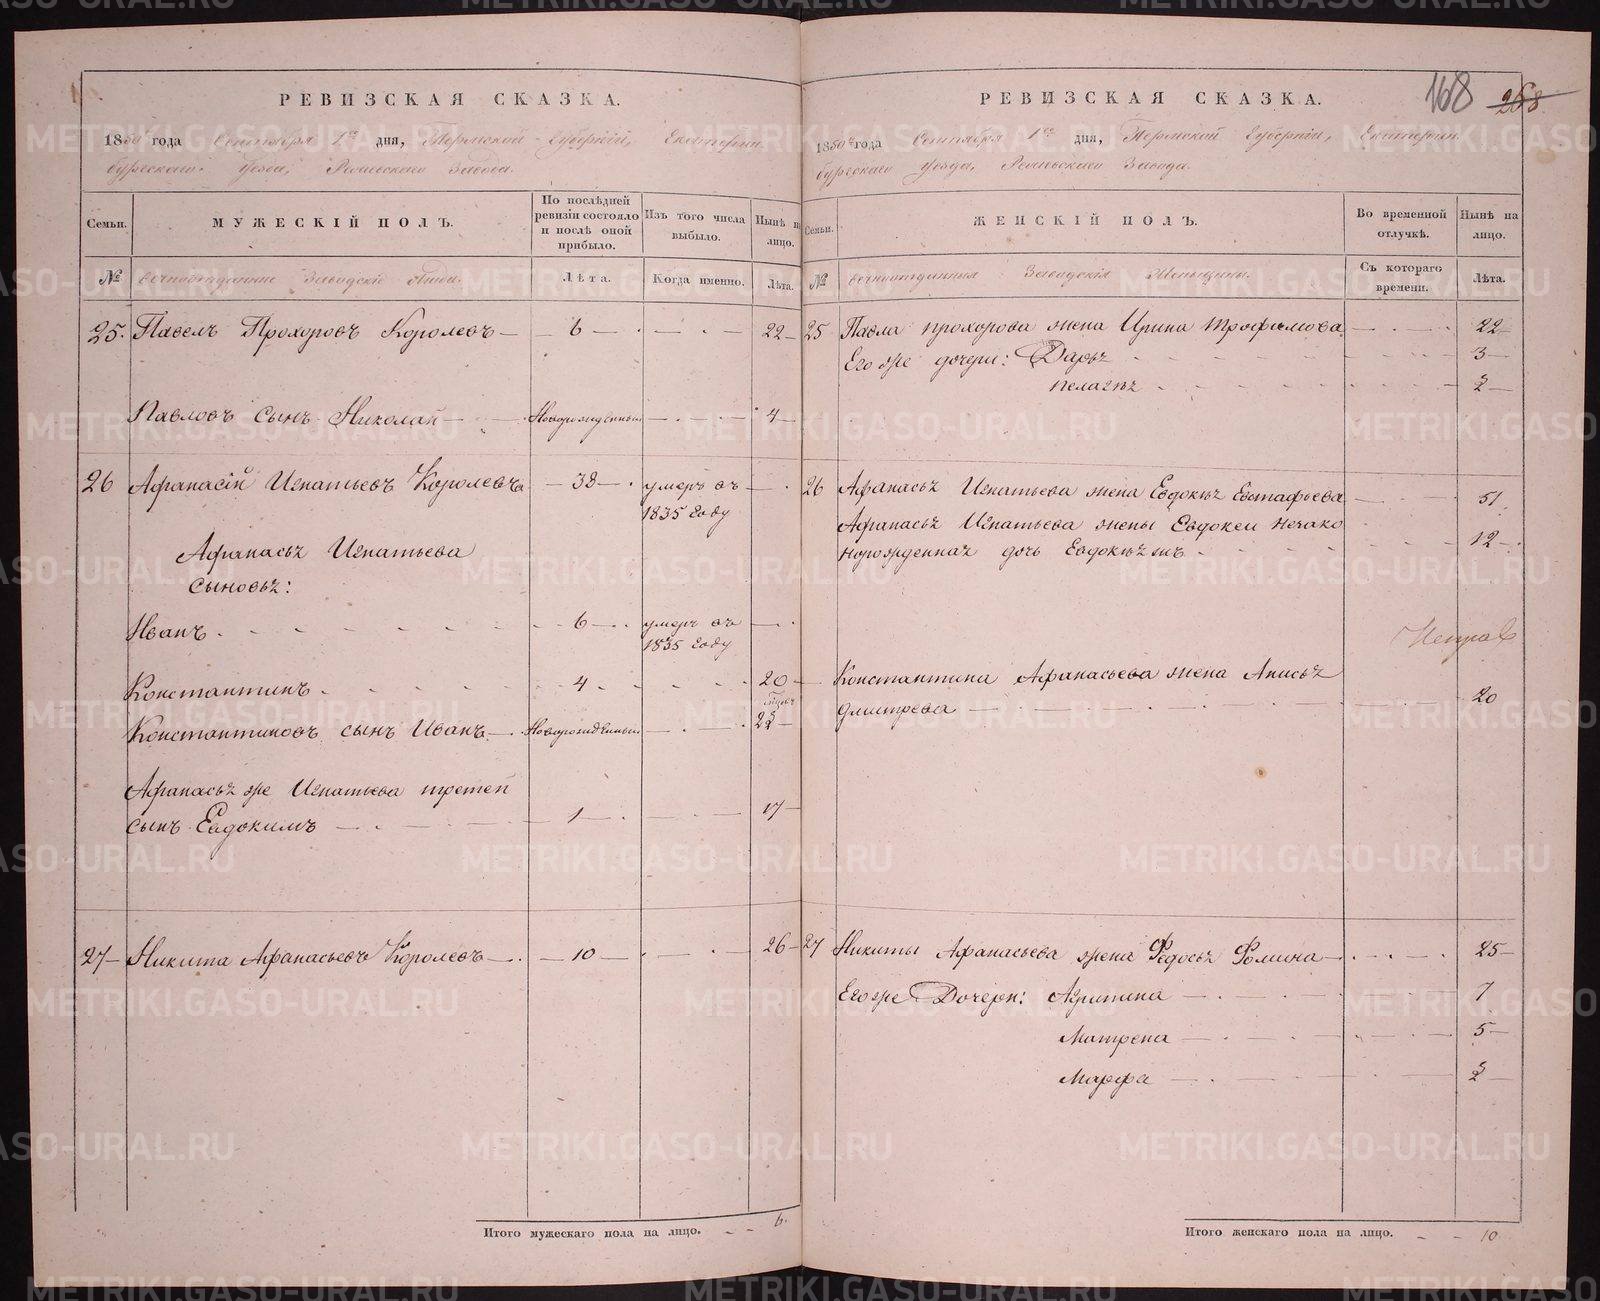 РЕВИЗСКАЯ СКАЗКА.
1850 года Сентября 1го дня, Пермской Губерніи, Екатерин
бургскаго Уезда, Завода.
Семьи.
МУЖЕСКІЙ ПОЛЪ.
По послѣдней ревизіи состояло и послѣ оной прибыло.
Изъ того числа выбыло.
Нынѣ на лицо.
№ Заводскіе Люди.
Лѣта.
Когда именно.
Лѣта.
25. Павелъ Прохоровъ Королевъ — 6 — 22
Павловъ сынъ Николай — Новорожденный — 4
26 Афанасій Игнатьевъ Королевъ — 38 — умеръ въ 1835 году
Афанасья Игнатьева
сыновья:
Иванъ — 6 — умеръ въ 1835 году
Константинъ — 4 — 20
Константиновъ сынъ Иванъ — Новорожденный
Афанасья же Игнатьева третей
сынъ Евдокимъ — 1 — 17
27 Никита Афанасьевъ Королевъ — 10 — 26
Итого мужескаго пола на лицо. 6.
168 268
РЕВИЗСКАЯ СКАЗКА.
1850 года Сентября 1го дня, Пермской Губерніи, Екатерин
бургскаго Уезда, Завода.
Семьи.
ЖЕНСКІЙ ПОЛЪ.
Во временной отлучкѣ.
Нынѣ на лицо.
№ Заводскія Женьщины.
Съ котораго времени.
Лѣта.
25 Павла прохорова жена Ирина трофимова — 22
Его же дочери: Дарья — 3
пелагѣя — 2
26 Афанасья Игнатьева жена Евдокѣя Евстафьева — 51
Афанасья Игнатьева жены Евдокеи незако
норожденная дочь — 12
Константина Афанасьева жена Анисья
дмитрева — 20
27 Никиты Афанасьева жена Федосья Фомина — 25
Его же Дочери: Агрипина — 7
Матрена — 5
Марфа
Итого женскаго пола на лицо. 10
METRIKI.GASO-URAL.RU